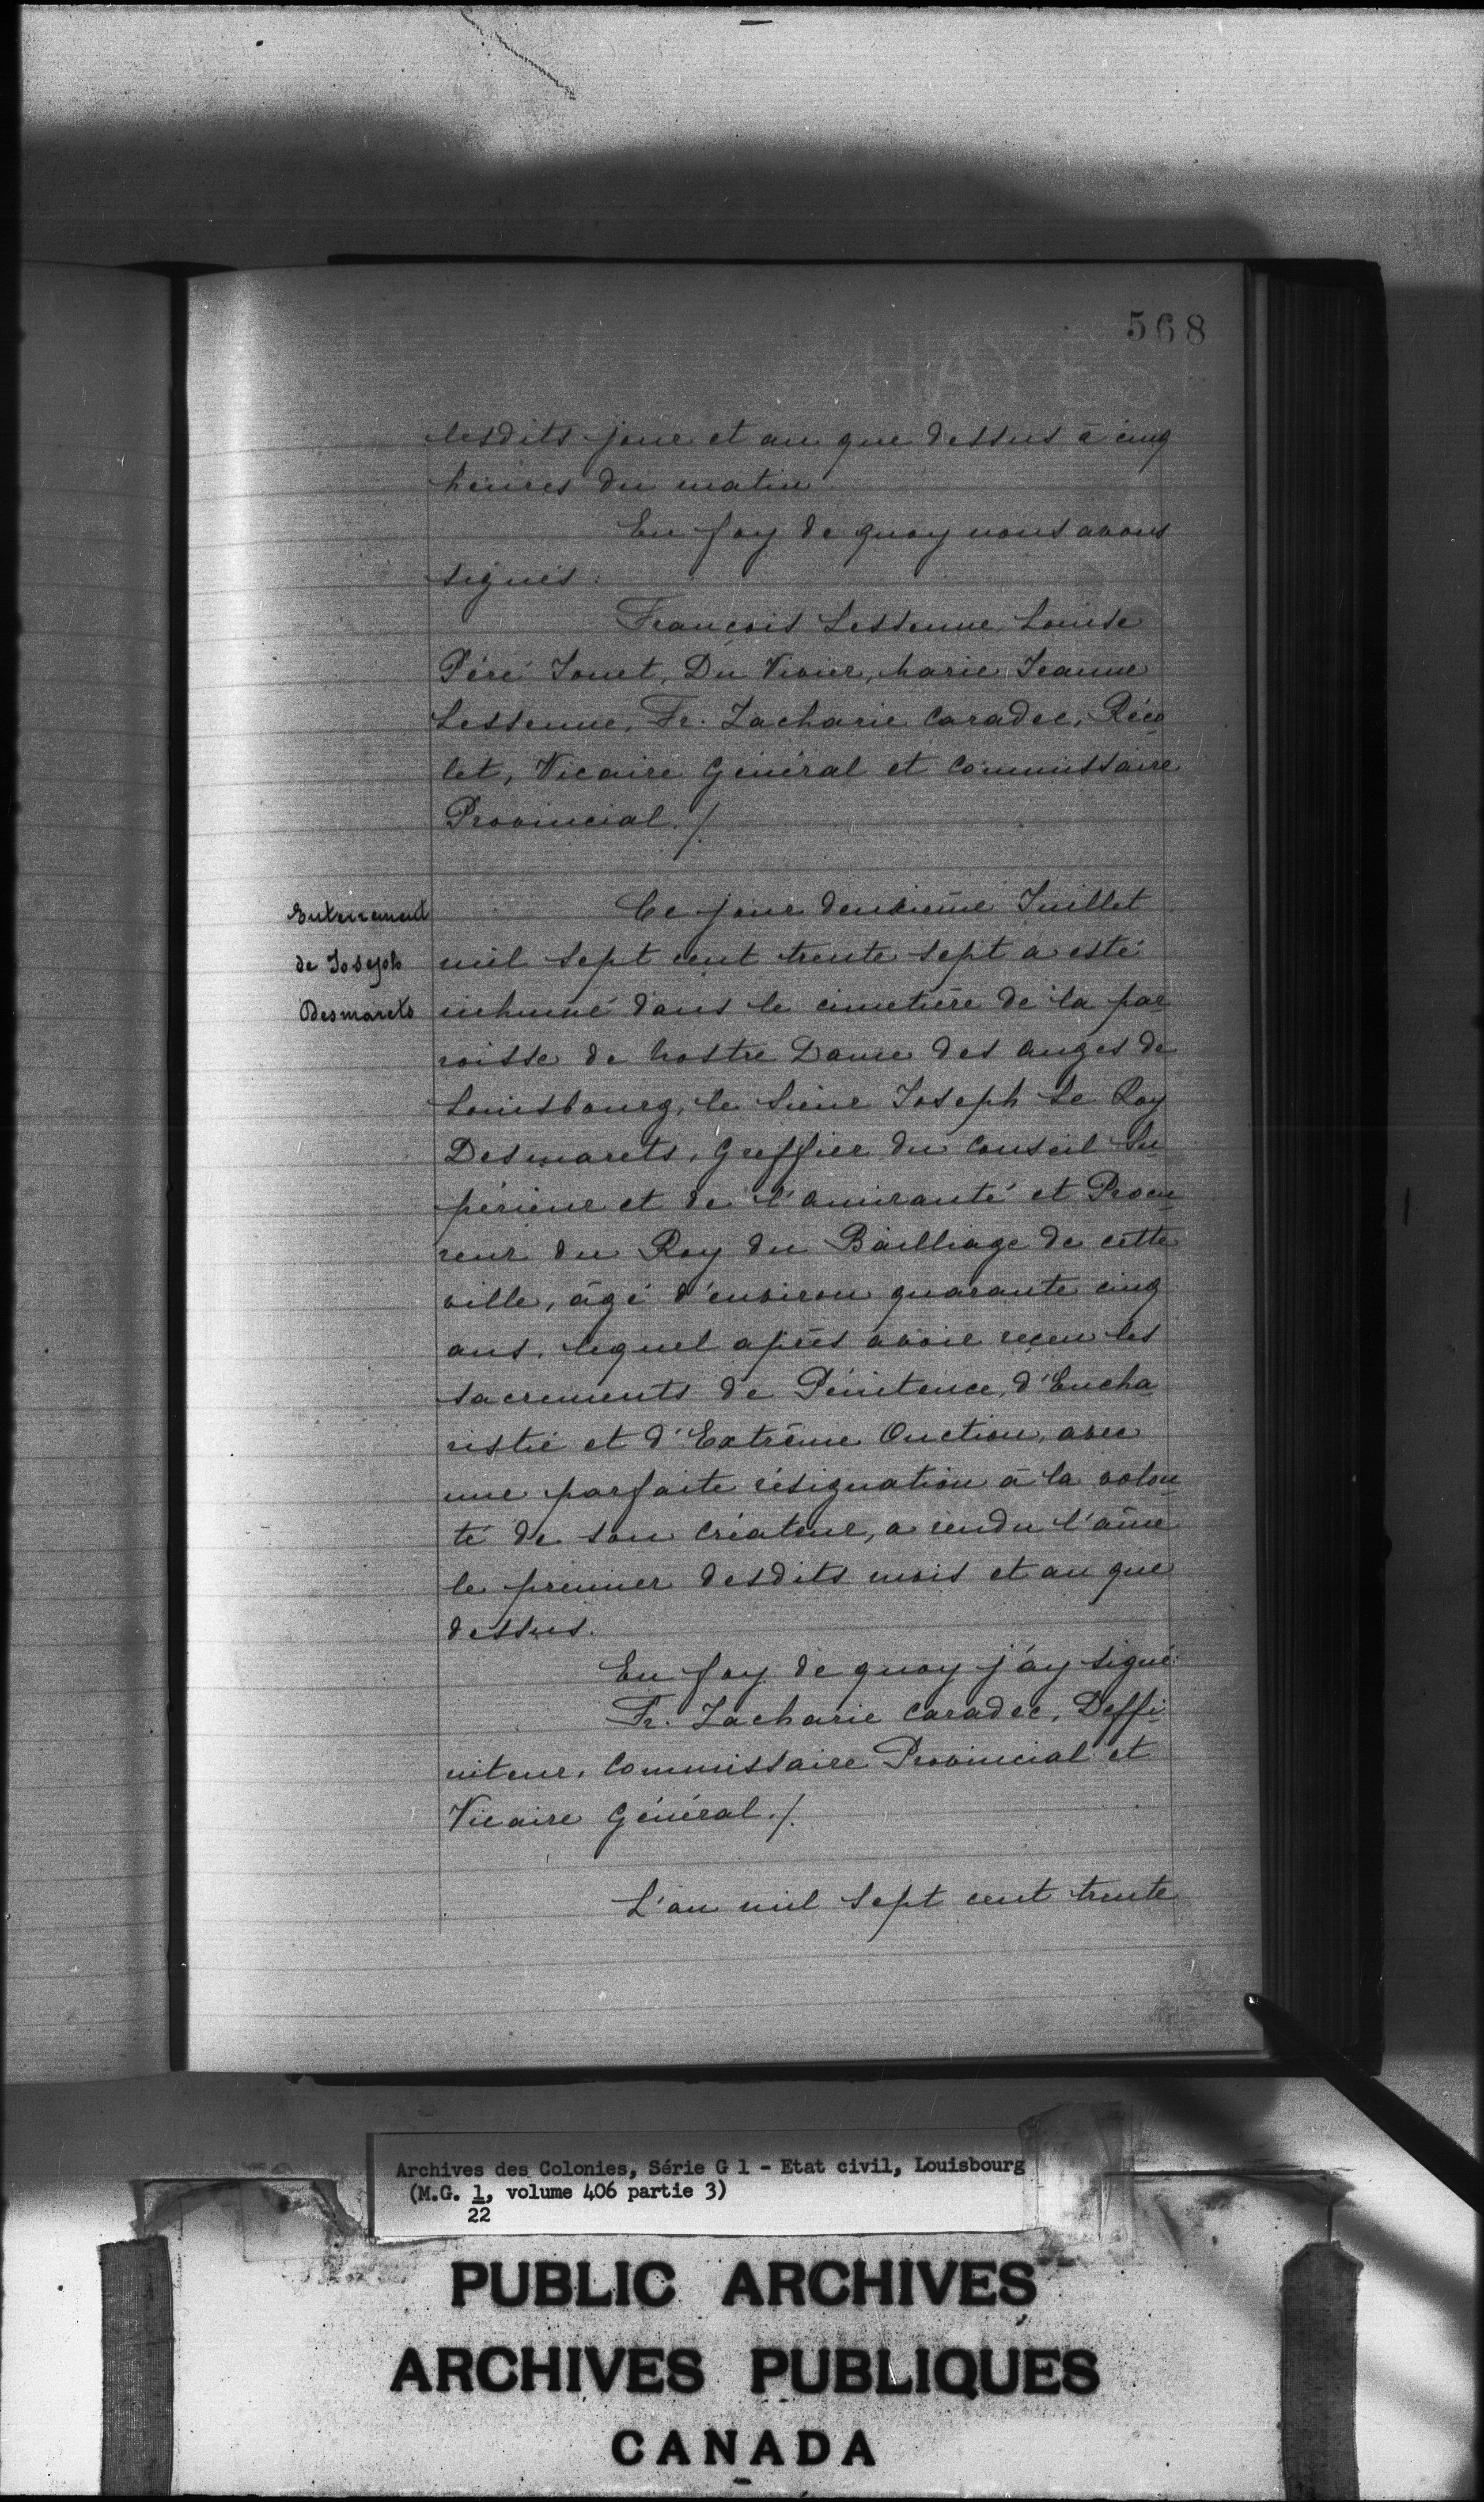 568
lesdits jour et an que dessus à cinq
heures du matin
En foy de quoy nous avons
signés:
François Lessenne, Louise
Péré Jouet, Du Vivier, Marie Jeanne
Lessenne, Fr. Zacharie Caradec, Réco
let, Vicaire Général et Commissaire
Provincial ./.
Enterrement
de Joseph
Desmarets
Ce jour deuxième Juillet
mil sept cent trente sept a esté
inhumé dans le cimetière de la par
roisse de Nostre Dame des anges de
Louisbourg, le Sieur Joseph Le Roy
Desmarets, Greffier du Conseil Su
périeur et de l'amirauté et Procu
reur du Roy du Bailliage de cette
ville, âgé d'environ quarante cinq
ans, lequel après avoir reçeu les
sacrements de Pénitence, d'Eucha
ristie et d'Extrême Onction, avec
une parfaite résignation à la volon
té de son Créateur, a rendu l'âme
le premier desdits mois et an que
dessus.
En foy de quoy j'ay signé:
Fr. Zacharie Caradec, Deffi
niteur, Commissaire Provincial et
Vicaire Général ./.
L'an mil sept cent trente
Archives des Colonies, Série G 1 - Etat civil, Louisbourg
(M.G. 1, volume 406 partie 3)
22
PUBLIC ARCHIVES
ARCHIVES PUBLIQUES
CANADA